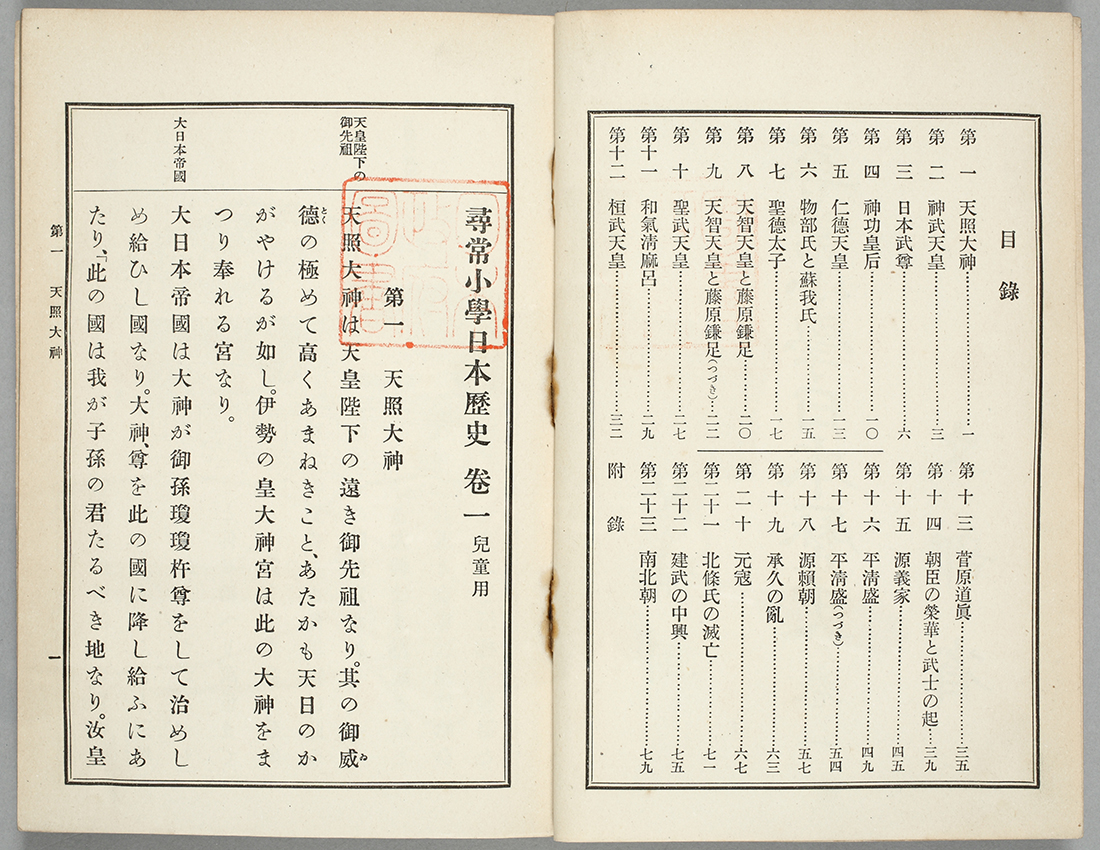 目錄
第一 天照大神……一
第二 神武天皇……三
第三 日本武尊……六
第四 神功皇后……一〇
第五 仁德天皇……一三
第六 物部氏と蘇我氏……一五
第七 聖德太子……一七
第八 天智天皇と藤原鎌足……二〇
第九 天智天皇と藤原鎌足(つづき)……二二
第十 聖武天皇……二七
第十一 和氣淸麻呂……二九
第十二 桓武天皇……三二
第十三 菅原道眞……三五
第十四 朝臣の榮華と武士の起……三九
第十五 源義家……四五
第十六 平淸盛……四九
第十七 平淸盛(つづき)……五四
第十八 源賴朝……五七
第十九 承久の亂……六三
第二十 元寇……六七
第二十一 北條氏の滅亡……七一
第二十二 建武の中興……七五
第二十三 南北朝……七九
附錄
尋常小學日本歷史 卷一 兒童用
第一 天照大神
天皇陛下の
御先祖
天照大神は天皇陛下の遠き御先祖なり。其の御威ゐ
德とくの極めて高くあまねきこと、あたかも天日のか
がやけるが如し。伊勢の皇大神宮は此の大神をま
つり奉れる宮なり。
大日本帝國
大日本帝國は大神が御孫瓊瓊杵尊をして治めし
め給ひし國なり。大神、尊を此の國に降し給ふにあ
たり、「此の國は我が子孫の君たるべき地なり。汝皇
第一 天照大神
一